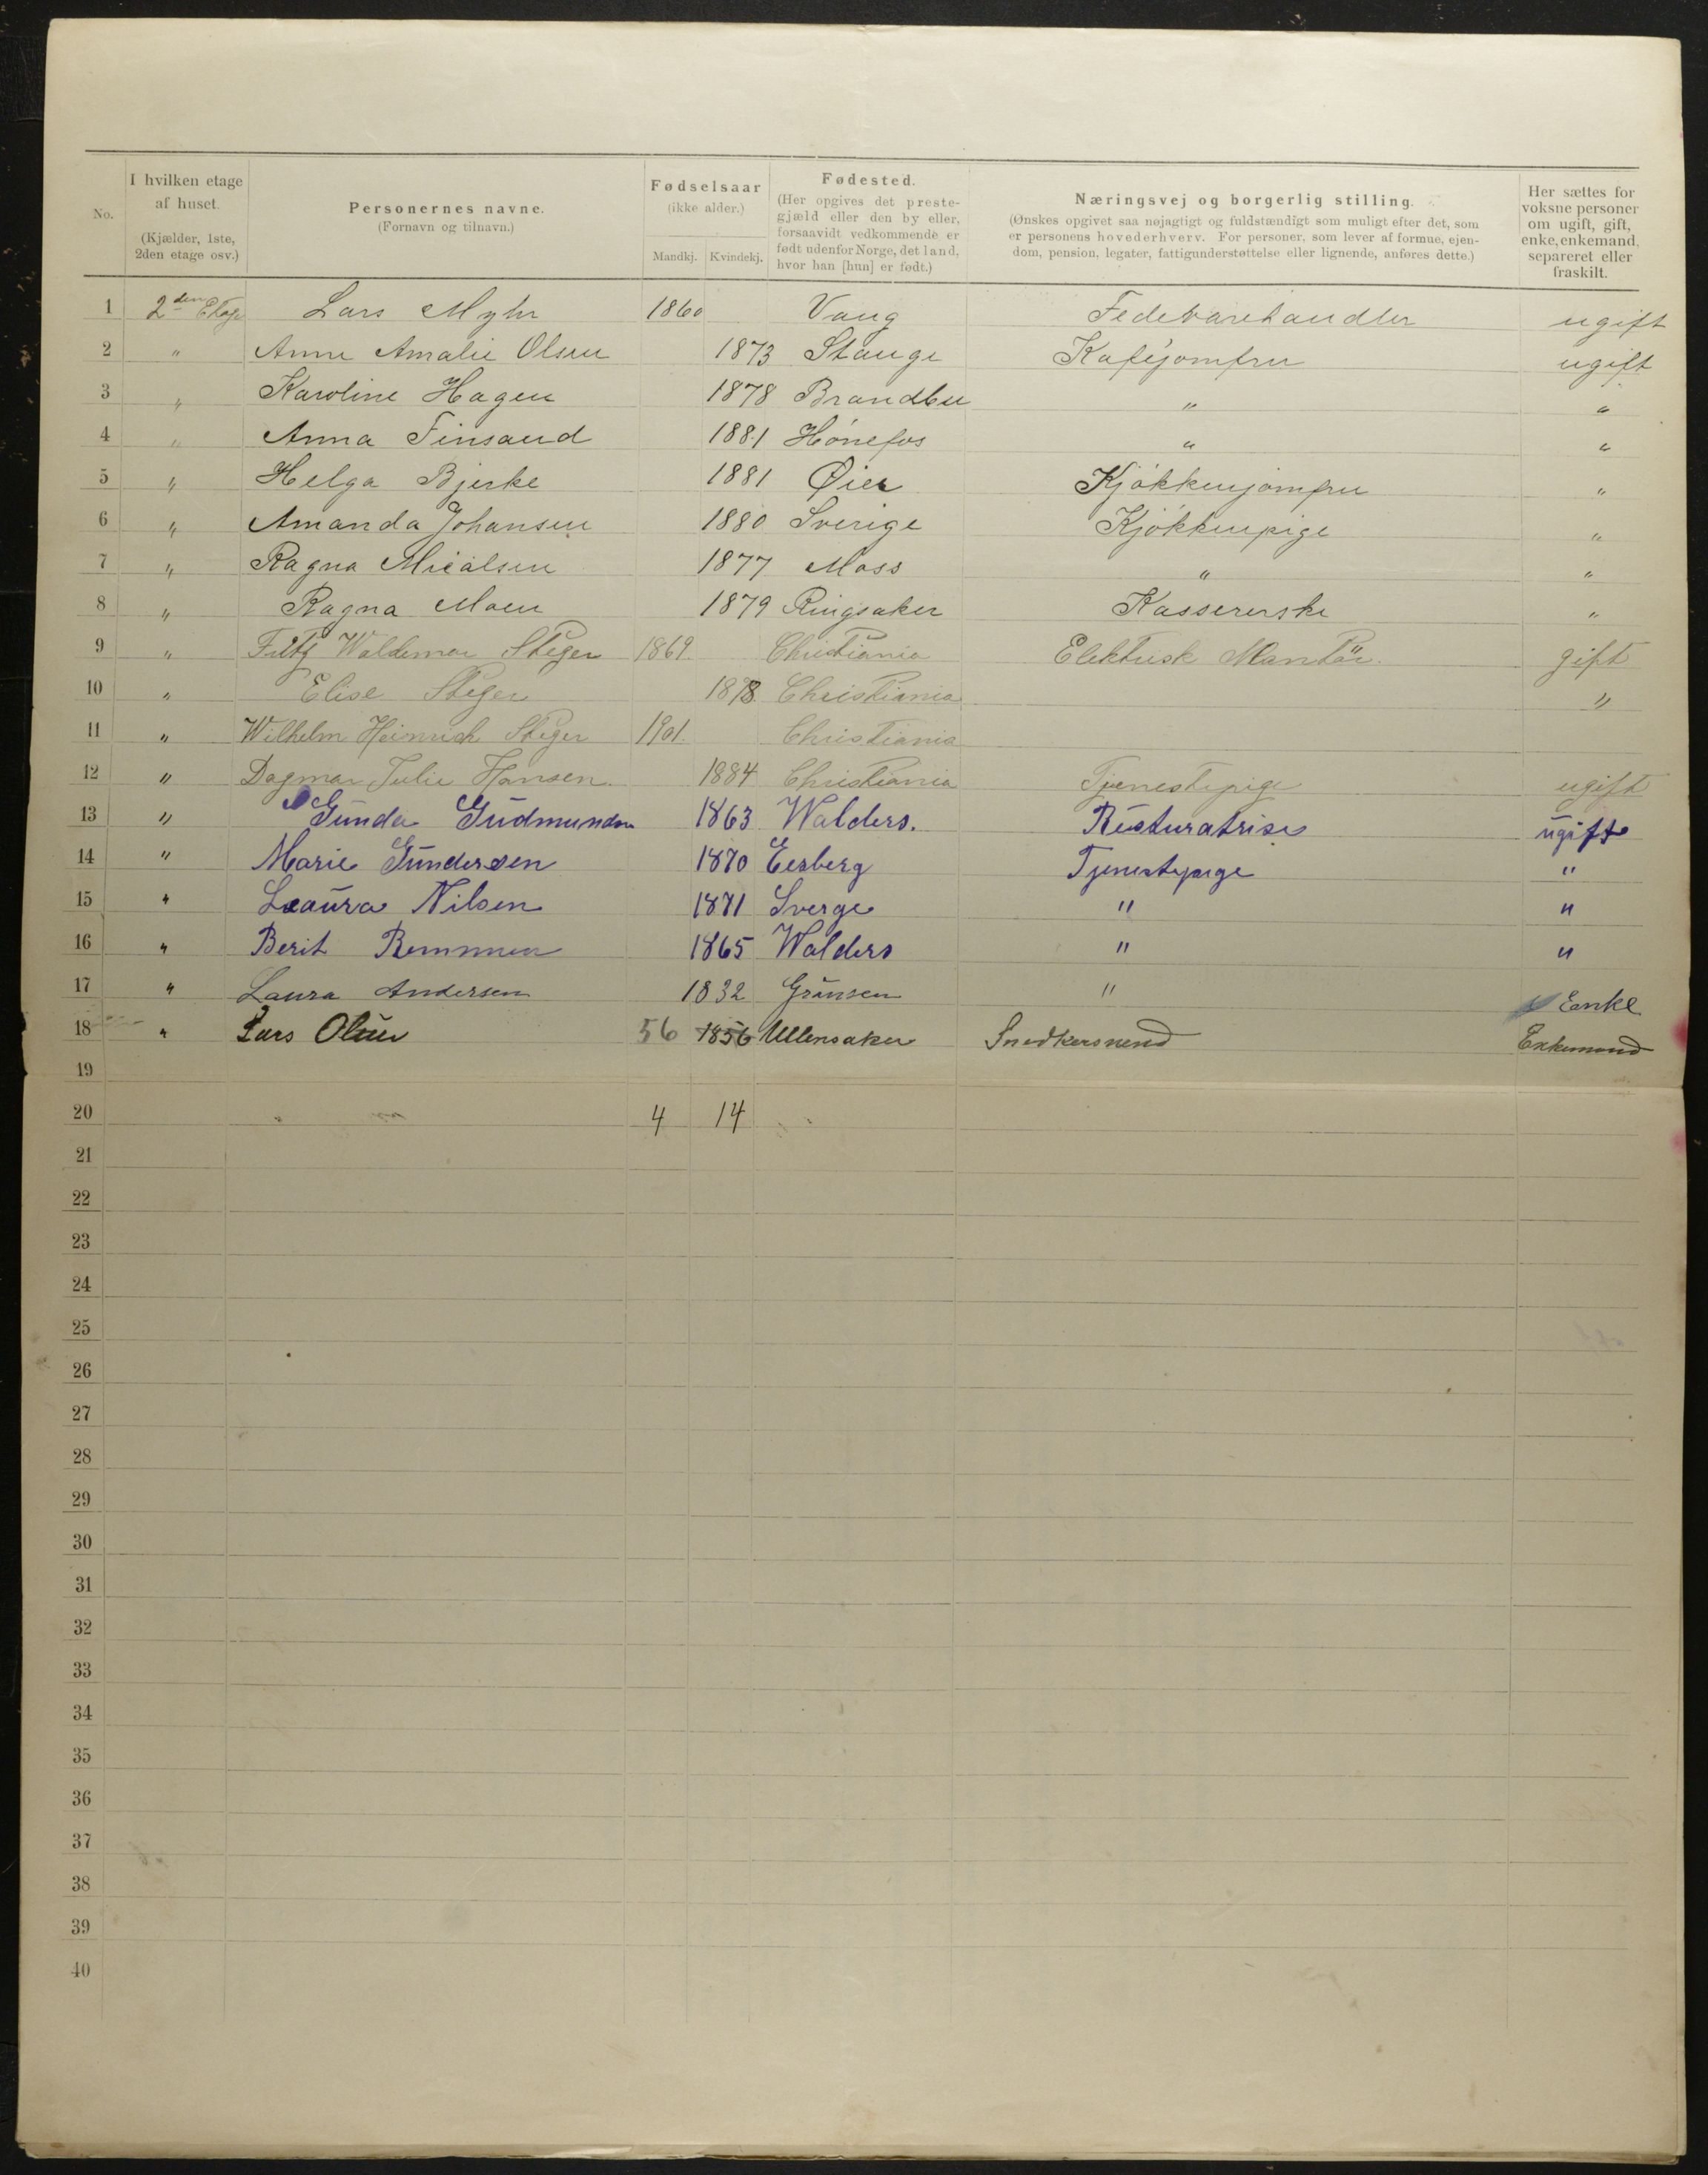 No.
I hvilken etage af huset. (Kjælder, 1ste, 2den etage osv.)
Personernes navne. (Fornavn og tilnavn.)
Fødselsaar (ikke alder.)
Mandkj. Kvindekj.
Fødested. (Her opgives det prestegjæld eller den by eller, forsaavidt vedkommende er født udenfor Norge, det land, hvor han [hun] er født.)
Næringsvej og borgerlig stilling. (Ønskes opgivet saa nøjagtigt og fuldstændigt som muligt efter det, som er personens hovederhverv. For personer, som lever af formue, ejendom, pension, legater, fattigunderstøttelse eller lignende, anføres dette.)
Her sættes for voksne personer om ugift, gift, enke, enkemand, separeret eller fraskilt.
1 2den Etage Lars Myhr 1860 Vang Fedevarehandler ugift
2 " Anne Amalie Olsen 1873 Stange Kaféjomfru ugift
3 " Karoline Hagen 1878 Brandbu " "
4 " Anna Finsand 1881 Hónefos " "
5 " Helga Bjerke 1881 Øier Kjókkenjomfru "
6 " Amanda Johansen 1880 Sverige Kjókkenpige "
7 " Ragna Micalsen 1877 Moss " "
8 " Ragna Moen 1879 Ringsaker Kassererske "
9 " Fritz Waldemar Steger 1869. Christiania Elektrisk Mantör. gift
10 " Elise Steger 1878 Christiania "
11 " Wilhelm Heinrich Steger 1901. Christiania
12 " Dagmar Julie Hansen. 1884 Christiania Tjenestepige ugift
13 " Gunda Gudmundsen 1863 Walders. Risturatrise ugift
14 " Marie Gundersen 1870 Eesberg Tjenestepige "
15 " Laura Nilsen 1871 Sverge " "
16 " Berit Remmen 1865 Walders " "
17 " Laura Andersen 1832 Gransen " Eenke
18 " Lars Olsen 56 1856 Ullensaker Snedkersvend Enkemand
19
20 4 14
21
22
23
24
25
26
27
28
29
30
31
32
33
34
35
36
37
38
39
40